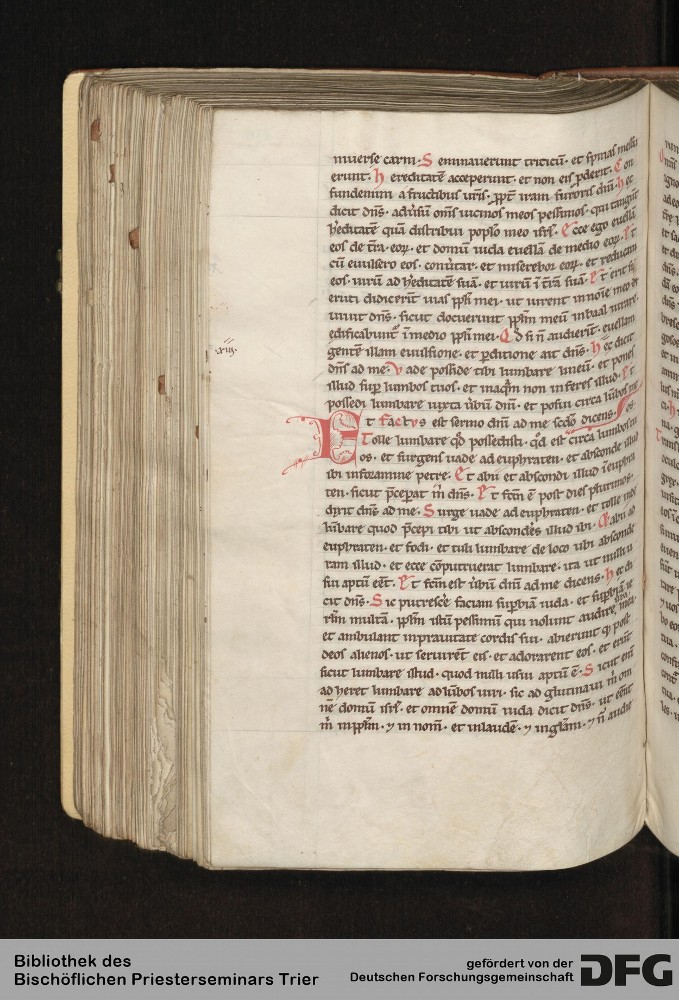 niuerse carni· Seminauerunt triticū· et spinas messu
erunt· Hereditatē acceperunt· et non eis
fundemini a fructibus uris· ppt iram furoris dni· Hec
dicit dns· aduersū oms uicinos meos pessimos· qui tangunt
hereditatē quā distribui populo meo isrl· Ecce ego euellā
eos de tra eoꝝ· et domū iuda euellā de medio eoꝝ· Et
cū euulsero eos· conuertar· et miserebor eoꝝ· et reducam
eos· uirū ad hereditatē suā· et uirū ī trā suā· Et erit si
eruti didicerīt uias ppli mei· ut iurent in noīe meo
uiuit dns· sicut docuerunt pplm meū in baal iurare·
edificabunt ī medio ppli mei· Qd si n audierīt· euellam
gentē illam euulsione· et perditione ait dns· Hec dicit
dns ad me· Vade posside tibi lumbare lineū· et pones
illud sup lumbos tuos· et in aquam non inferes illud· Et
possedi lumbare iuxta uerbū dni· et posui circa lūbos
·xiii·
Et factvs est sermo dni ad me scdo dicens· meos·
Tolle lumbare qd possedisti· qd est circa lumbos tu
os· et surgens uade ad euphraten· et absconde illud
ibi in foramine petre· Et abii et abscondi illud ī euphra
ten· sicut pceperat m dns· Et fctm ē post dies plurimos·
dixit dns ad me· Surge uade ad euphraten· et tolle inde
lūbare quod pcepi tibi ut absconderes illud ibi· Et abii ad
euphraten· et fodi· et tuli lumbare de loco ubi absconde
ram illud· et ecce cōputruerat lumbare· ita ut nulli u
sui aptū eēt· Et fctm est uerbū dni ad me dicens· Hec di
cit dns· Sic putrescere faciam supbiā iuda· et supbiā ie
rlm multā· pplm istū pessimū qui nolunt audire uerba mea·
et ambulant in prauitate cordis sui· abierunt qꝫ post
deos alienos· ut seruirēt eis· et adorarent eos· et erūt
sicut lumbare istud· quod nulli usui aptū ē· Sicut eni
adheret lumbare ad lūbos uiri· sic adglutinaui m om
nē domū isrl· et omnem domū iuda dicit dns· ut eēnt
m in pplm· ⁊ in nom· et in laudē· ⁊ in glam· ⁊ n audie
Bibliothek des
Bischöflichen Priesterseminars Trier
gefördert von der
Deutschen Forschungsgemeinschaft
DFG